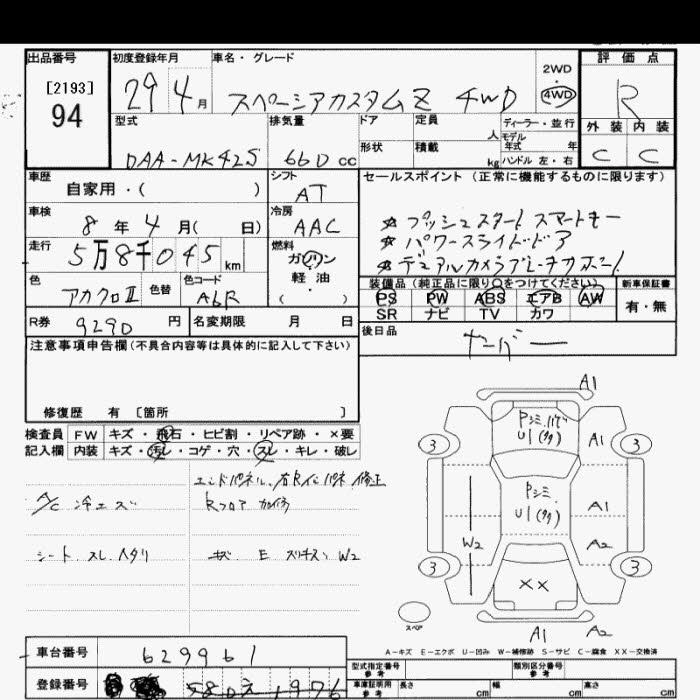 出品番号
[2193]
94
初度登録年月
29 4 月
車名・グレード
スペーシアカスタムZ 4WD
2WD
・
4WD
評価点
R
外装 内装
C C
型式
DAA-MK42S
排気量
660 cc
ドア
形状
定員
人
積載
kg
ディーラー・並行
モデル
年式 年
ハンドル 左・右
車歴
自家用・( )
シフト
AT
車検
8 年 4 月( 日)
冷房
AAC
走行
5万8千045 km
燃料
ガソリン
軽油
( )
色
アカクロⅡ
色替
色コード
A6R
R券
9290 円
名変期限 月 日
セールスポイント(正常に機能するものに限ります)
☆ プッシュスタート スマートキー
☆ パワースライドドア
☆ デュアルカメラブレーキサポート
装備品(純正品に限り○をつけてください)
PS PW ABS エアB AW
SR ナビ TV カワ
新車保証書
有・無
後日品
注意事項申告欄(不具合内容等は具体的に記入して下さい)
修復歴 有 [箇所 ]
検査員
記入欄
FW キズ・飛石・ヒビ割・リペア跡・×要
内装 キズ・汚レ・コゲ・穴・スレ・キレ・破レ
エンドパネル、右Rインパネ 修正
A/C 冷エズ
Rフロア 加修
シート スレ ヘタリ
キズ E W2
A1
Pシミ
U1
3
A1
3
Pシミ
U1
A1
W2
A2
3
××
3
スペア
A1
A2
A-キズ E-エクボ U-凹み W-補修跡 S-サビ C-腐食 XX-交換済
車台番号
629961
登録番号
型式指定番号
参考
類別区分番号
参考
車庫証明用
参考
長さ cm
幅 cm
高さ cm